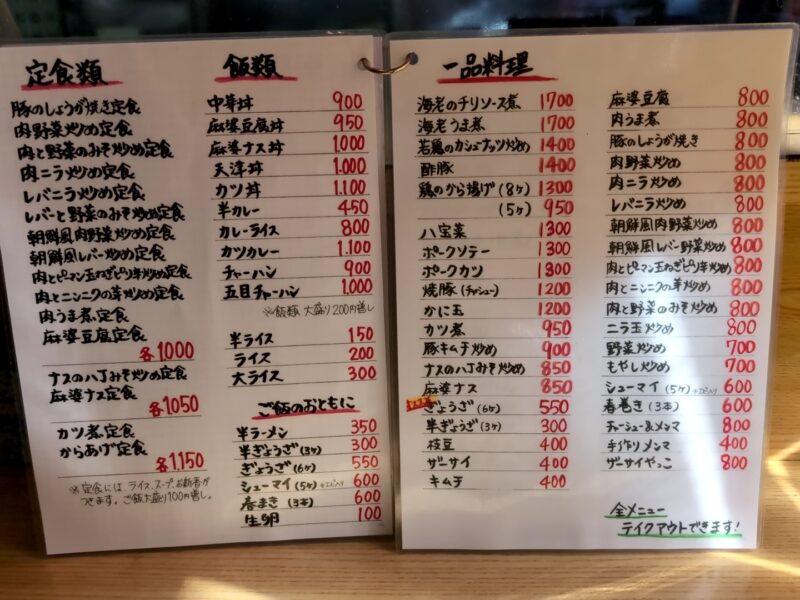 定食類
豚のしょうが焼き定食
肉野菜炒め定食
肉と野菜のみそ炒め定食
肉ニラ炒め定食
レバニラ炒め定食
レバーと野菜のみそ炒め定食
朝鮮風肉野菜炒め定食
朝鮮風レバー炒め定食
肉とピーマン玉ねぎピリ辛炒め定食
肉とニンニクの芽炒め定食
肉うま煮定食
麻婆豆腐定食
各1,000
ナスの八丁みそ炒め定食
麻婆ナス定食
各1,050
カツ煮定食
からあげ定食
各1,150
※定食には、ライス、スープ、お新香が
つきます。ご飯大盛り100円増し。
飯類
中華丼 900
麻婆豆腐丼 950
麻婆ナス丼 1,000
天津丼 1,000
カツ丼 1,100
半カレー 450
カレーライス 800
カツカレー 1,100
チャーハン 900
五目チャーハン 1,000
※飯類 大盛り200円増し
半ライス 150
ライス 200
大ライス 300
ご飯のおともに
半ラーメン 350
半ぎょうざ(3ケ) 300
ぎょうざ(6ケ) 550
シューマイ(5ケ)+エビ入り 600
春まき(3本) 600
生卵 100
一品料理
海老のチリソース煮 1700
海老うま煮 1700
若鶏のカシューナッツ炒め 1400
酢豚 1400
鶏のから揚げ(8ケ) 1300
(5ケ) 950
八宝菜 1300
ポークソテー 1300
ポークカツ 1300
焼豚(チャーシュー) 1200
かに玉 1200
カツ煮 950
豚キムチ炒め 900
ナスの八丁みそ炒め 850
麻婆ナス 850
ぎょうざ(6ケ) 550
半ぎょうざ(3ケ) 300
枝豆 400
ザーサイ 400
キムチ 400
麻婆豆腐 800
肉うま煮 800
豚のしょうが焼き 800
肉野菜炒め 800
肉ニラ炒め 800
レバニラ炒め 800
朝鮮風肉野菜炒め 800
朝鮮風レバー野菜炒め 800
肉とピーマン玉ねぎピリ辛炒め 800
肉とニンニクの芽炒め 800
肉と野菜のみそ炒め 800
ニラ玉炒め 800
野菜炒め 700
もやし炒め 700
シューマイ(5ケ)+エビ入り 600
春巻き(3本) 600
チャーシュー&メンマ 800
手作りメンマ 400
ザーサイやっこ 800
全メニュー
テイクアウトできます!